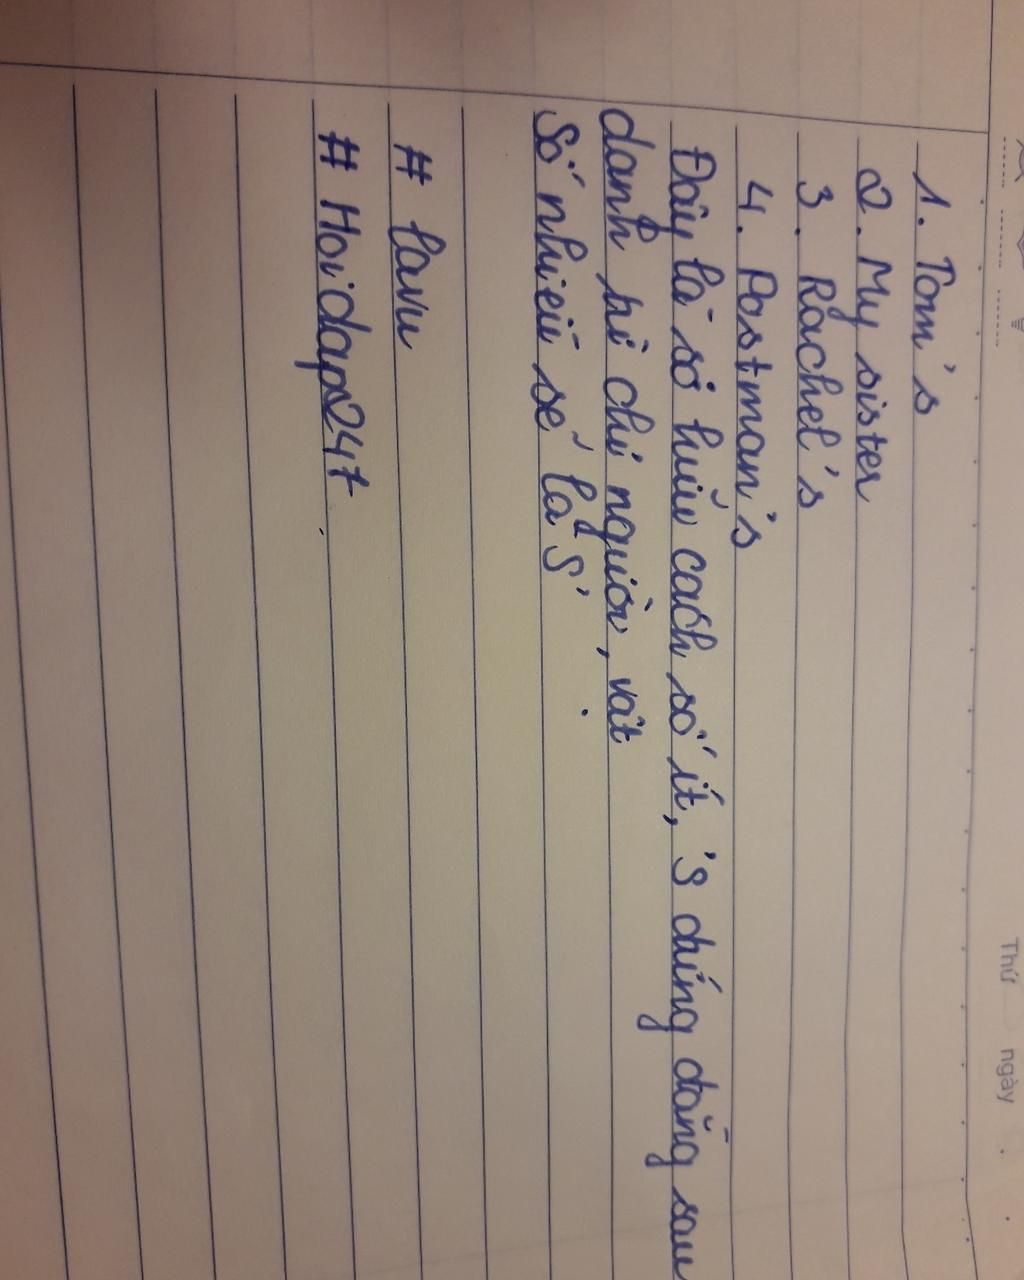 Thứ ngày
1. Tom's
2. My sister
3. Rachel's
4. Postman's
Đây là sở hữu cách số ít, 's đứng đằng sau
danh từ chỉ người, vật
Số nhiều sẽ là s'
# lavu
# Hoidap247